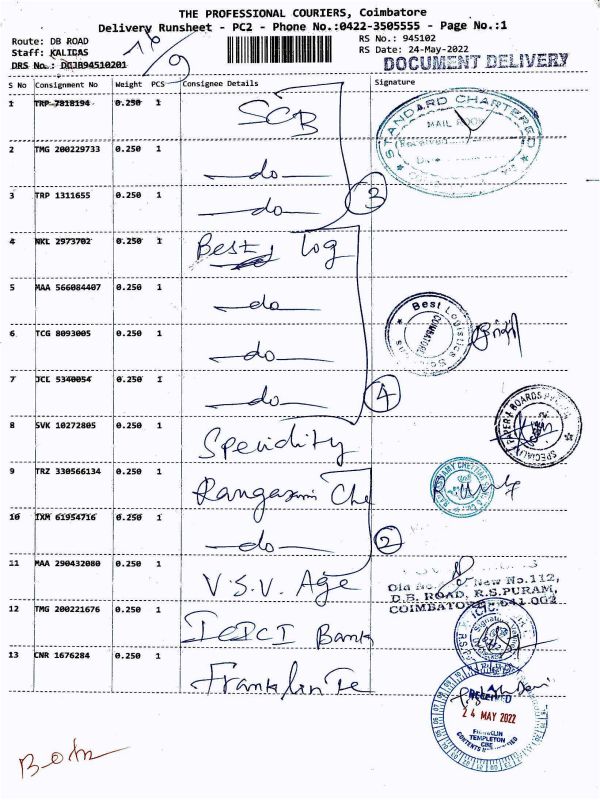 THE PROFESSIONAL COURIERS, Coimbatore
Delivery Runsheet - PC2 - Phone No.:0422-3505555 - Page No.:1
Route: DB ROAD
RS No.: 945102
Staff: KALIDAS
RS Date: 24-May-2022
DOCUMENT DELIVERY
S No Consignment No Weight PCS Consignee Details Signature
1 TRP 7818194 0.250 1 SCB
STANDARD CHARTERED
MAIL ROOM
2 TMG 200229733 0.250 1 —do—
3 TRP 1311655 0.250 1 —do—
3
4 NKL 2973702 0.250 1 Best Log
5 MAA 566084407 0.250 1 —do—
Best Logistics
COIMBATORE
6 TCG 8093005 0.250 1 —do—
7 JCL 5340054 0.250 1 —do—
4
8 SVK 10272805 0.250 1
PAPER & BOARDS
9 TRZ 330566134 0.250 1 Rangasami Che
10 IXM 61954716 0.250 1 —do—
2
11 MAA 290432080 0.250 1 V.S.V. Age
Old No. New No.112,
D.B. ROAD, R.S.PURAM,
COIMBATORE-641 002
12 TMG 200221676 0.250 1 ICICI Bank
13 CNR 1676284 0.250 1 Franklin Te
RECEIVED
24 MAY 2022
FRANKLIN
TEMPLETON
CBE